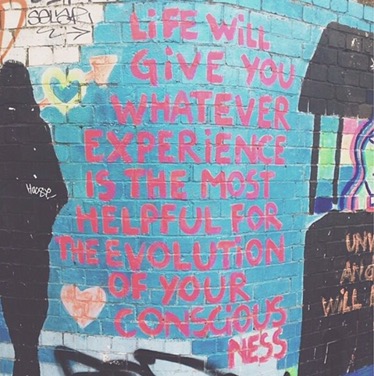 LiFE WiLL
GiVE YOU
WHATEVER
EXPERiENCE
iS THE MOST
HELPFUL FOR
THE EVOLUTION
OF YOUR
CONSCiOUS
NESS
WILL